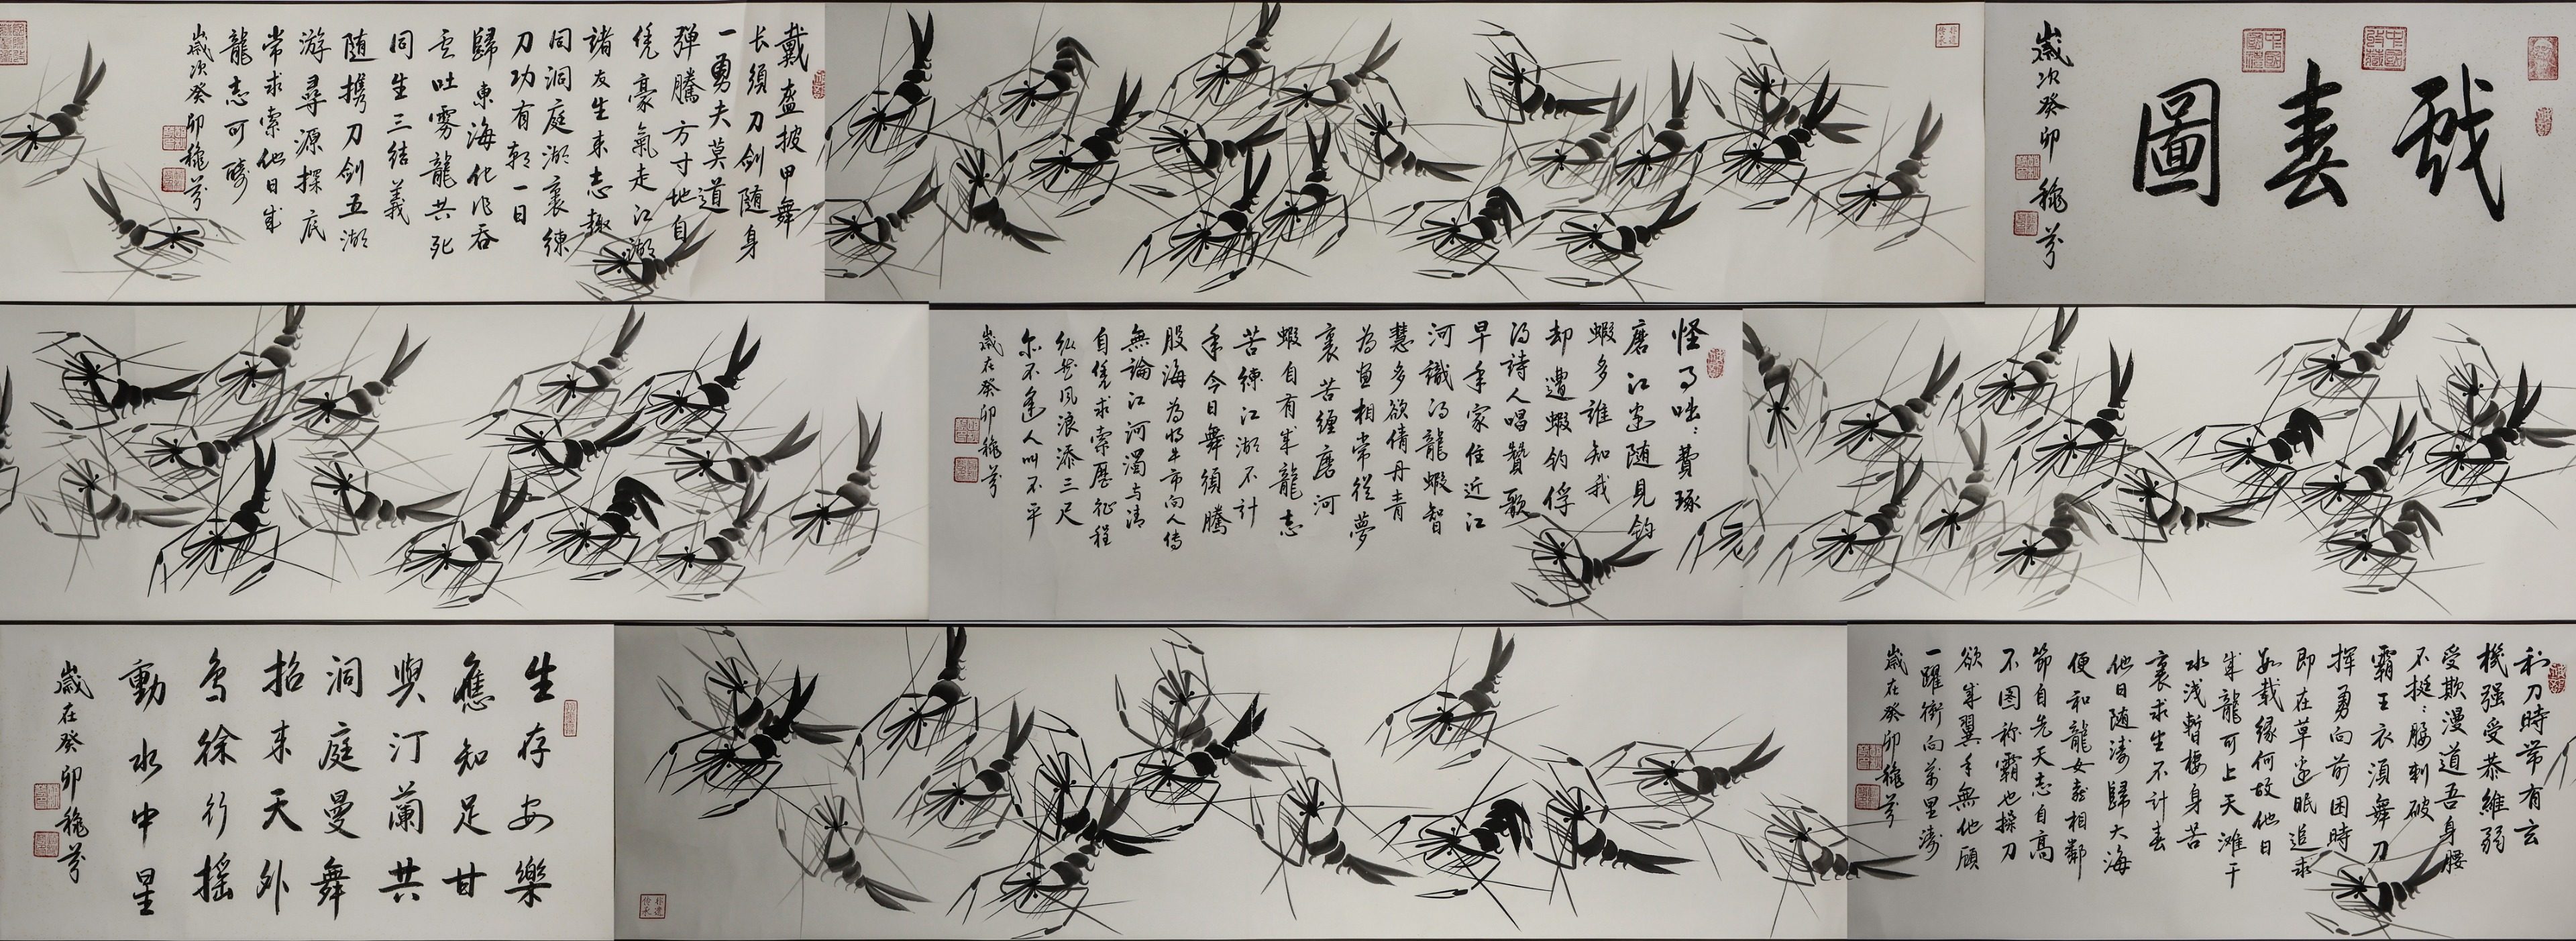 戲春圖
歲次癸卯 穐芬
戴盔披甲舞
长須刀劍随身
一勇夫莫道
彈騰方寸地自
凭豪氣走江湖
諸友生來志趣
同洞庭湖裏練
刀功有朝一日
歸東海化作吞
雲吐雾龍共死
同生三結義
随携刀劍五湖
游尋源探底
常求索他日成
龍志可酬
歲次癸卯穐芬
怪了咄咄費琢
磨江边随見钓
蝦多誰知我
却遭蝦钓俘
得詩人唱贊歌
早年家住近江
河識得龍蝦智
慧多欲倩丹青
為画相常從夢
裏苦纏磨河
蝦自有成龍志
苦練江湖不計
年今日舞須騰
股海為的生市向人傳
無論江河濁与清
自凭求索歷征程
纵然风浪添三尺
尔不逢人叫不平
歲在癸卯穐芬
利刀時常有玄
機强受恭維弱
受欺漫道吾身腰
不挺挺腰刺破
霸王衣須舞刀
挥勇向前困時
即在草边眠追求
数载缘何故他日
成龍可上天滩干
水浅暫棲身苦
裏求生不計春
他日随濤歸大海
便和龍女喜相鄰
節自先天志自高
不图称霸也操刀
欲成翼手無他顧
一躍衝向萬里濤
歲在癸卯穐芬
生存安樂
應知足甘
與汀蘭共
洞庭曼舞
招来天外
鳥徐行摇
動水中星
歲在癸卯穐芬